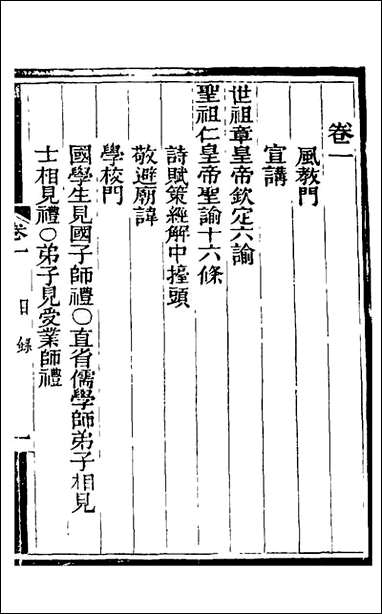 卷一
風教門
宣講
世祖章皇帝欽定六諭
聖祖仁皇帝聖諭十六條
詩賦策經解中擡頭
敬避廟諱
學校門
國學生見國子師禮○直省儒學師弟子相見
士相見禮○弟子見受業師禮
卷一
目錄
一